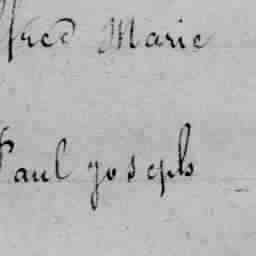 fred Marie
Paul joseph